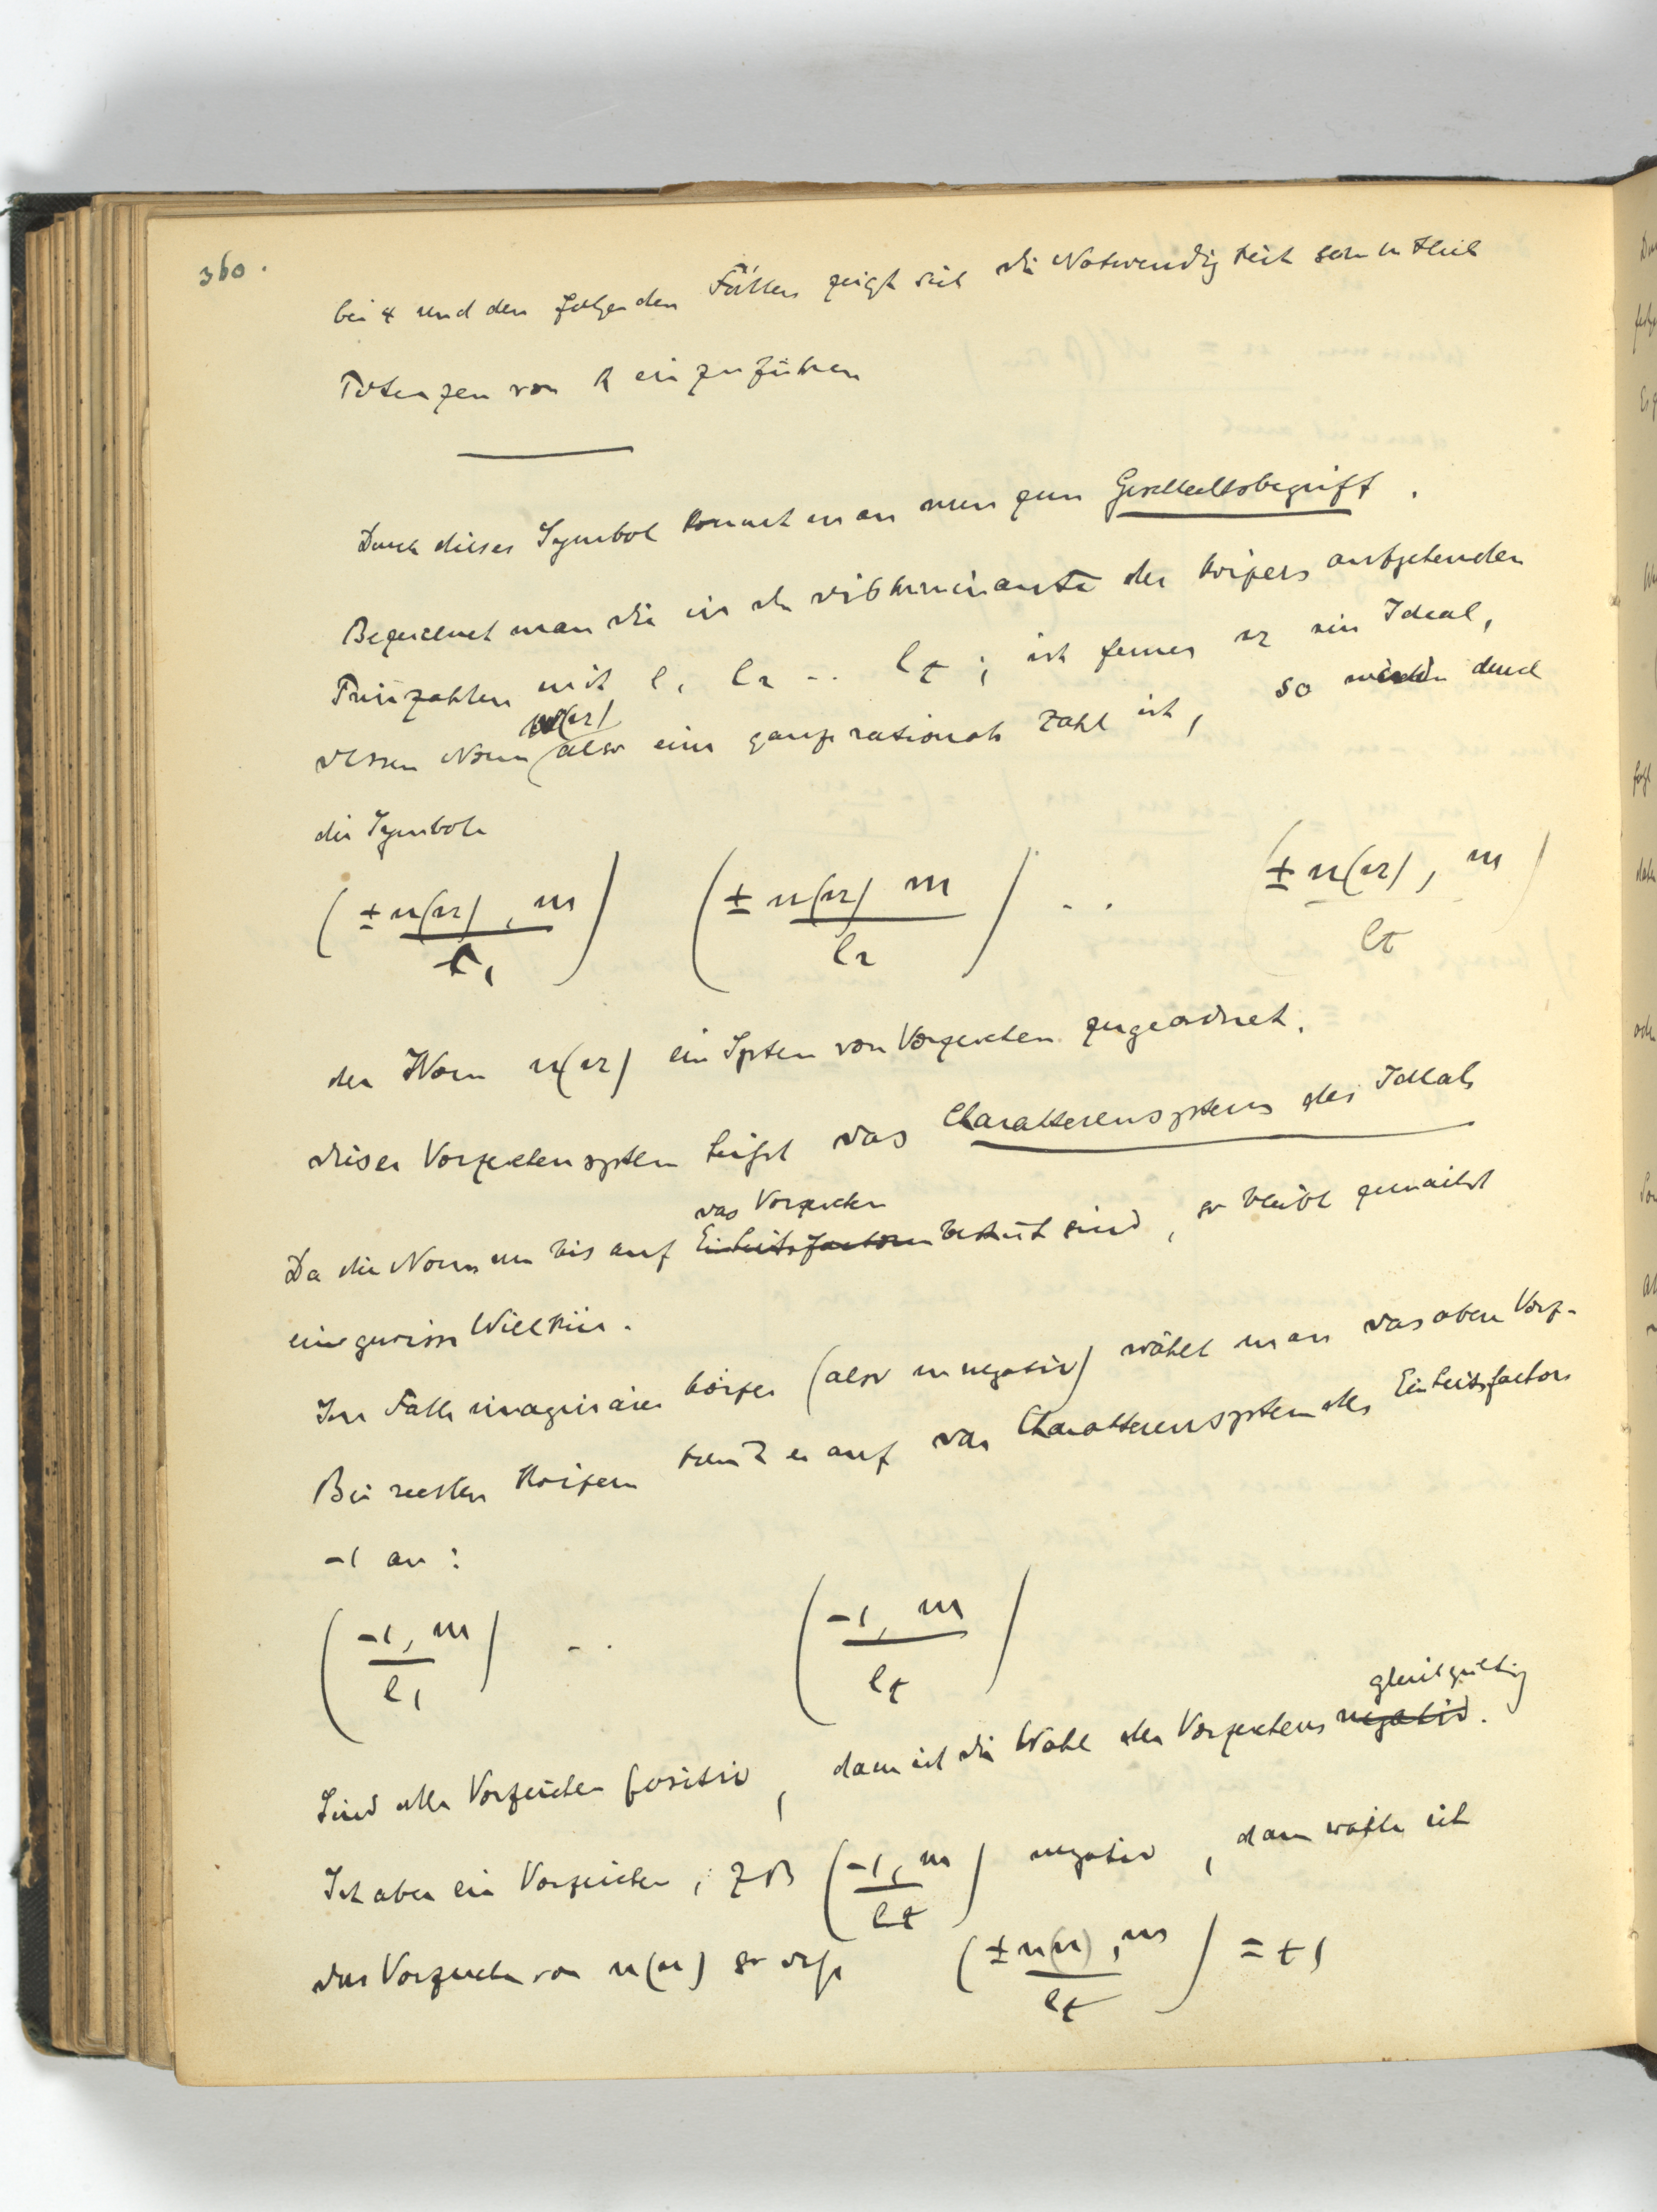 360.
bei 4 und den folgenden Fällen zeigt sich die Notwendigkeit
Potenzen von R einzuführen
Durch dieses Symbol kommt man nun zum Geschlechtsbegriff.
Bezeichnet man die in der Diskriminante des Körpers aufgehenden
Primzahlen mit l1 l2 .. lt ; ist ferner ein Ideal,
n(
dessen Norm also eine ganze rationale Zahl ist, so werden durch
die Symbole
(± n(α), m / l1) (± n(α) m / l2) .. (± n(α), m / lt)
der Norm n(α) ein System von Vorzeichen zugeordnet.
dieses Vorzeichensystem heißt das Charakterensystem des Ideals
das Vorzeichen
Da die Norm nur bis auf Einheitsfactoren bestimt sind, so bleibt zunächst
eine gewisse Willkür.
Im Falle imaginärer Körper (also m negativ) wählt man das obere Vorz-
Bei reellen Körpern komt es auf das Charakterensystem des Einheitsfactors
-1 an :
(-1, m / l1) .. (-1, m / lt)
gleichgültig
Sind alle Vorzeichen positiv, dann ist die Wahl des Vorzeichens negativ.
Ist aber ein Vorzeichen, zB (-1, m / lt) negativ, dann wähle ich
das Vorzeichen von n(α) so daß (± n(α), m / lt) = +1